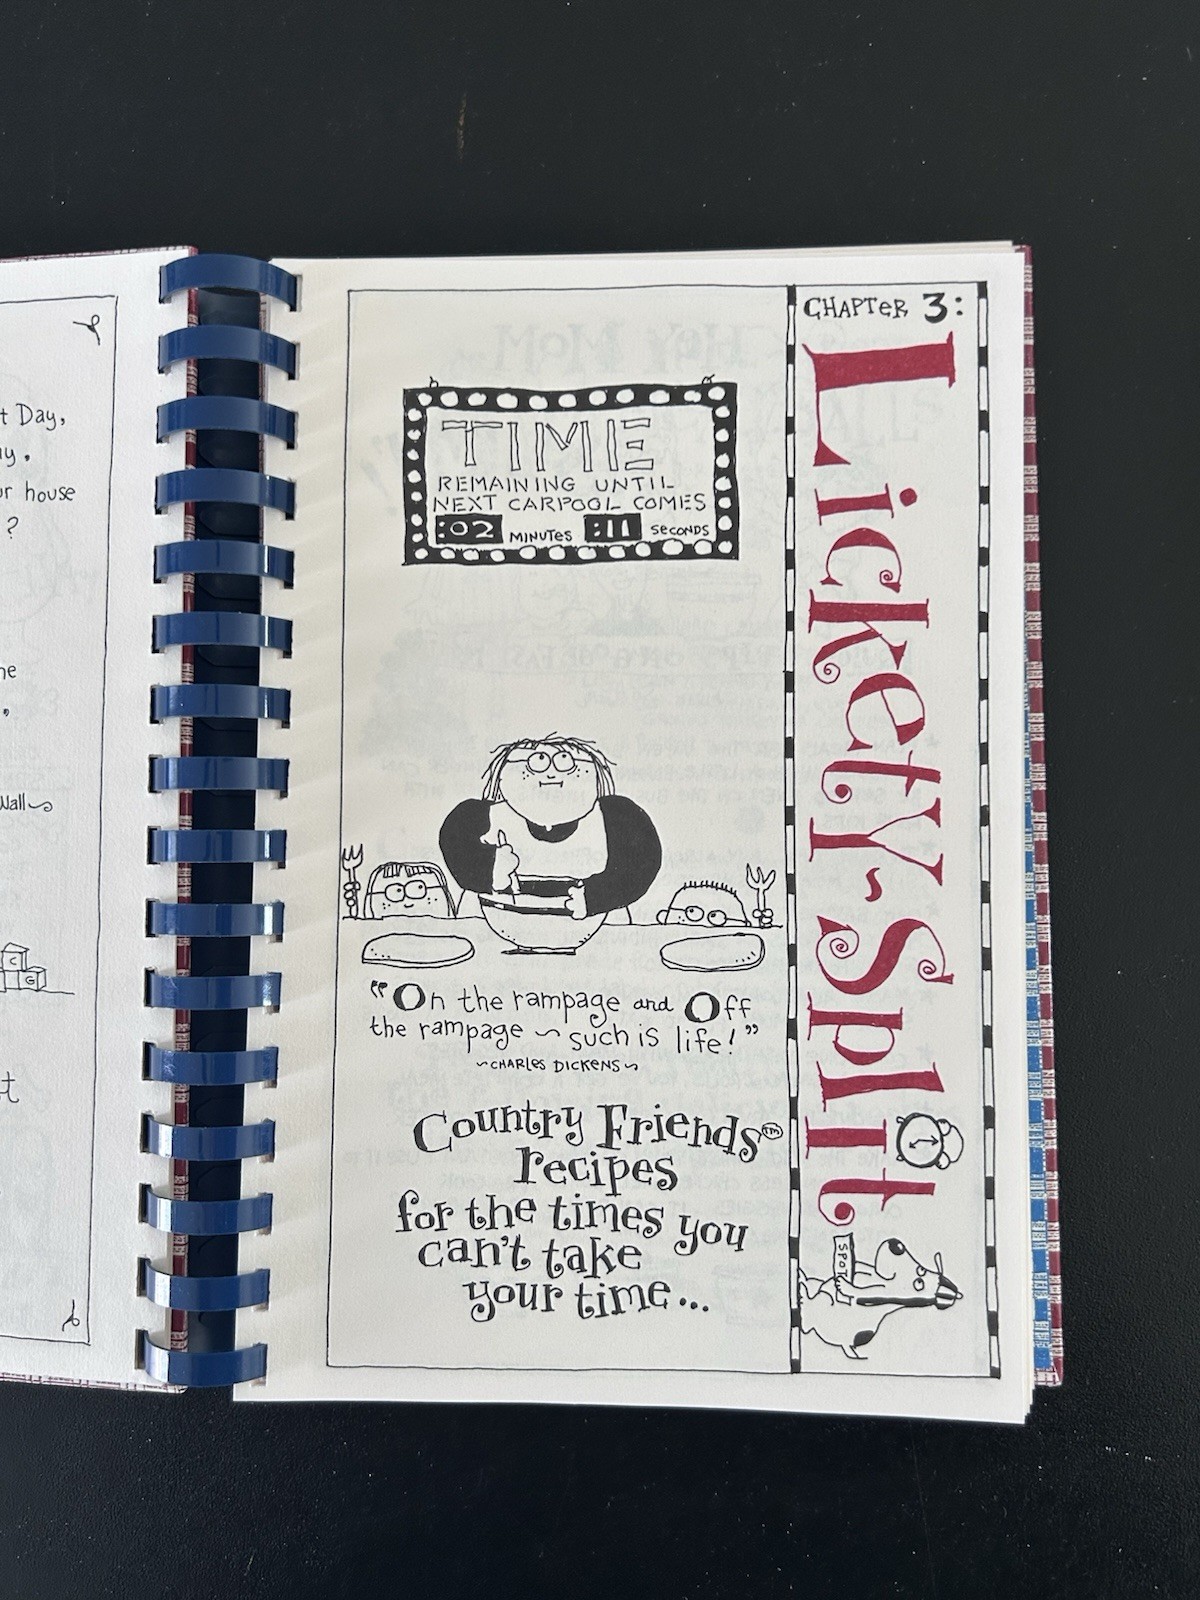 t Day,
ay.
ur house
?
he
,
Wall~
C
G
t
TIME
REMAINING UNTIL
NEXT CARPOOL COMES
:02 MINUTES :11 SECONDS
"On the rampage and Off
the rampage ~ such is life!"
~CHARLES DICKENS~
Country Friends™
recipes
for the times you
can't take
your time...
CHAPTER 3:
Lickety~Split
SPOT